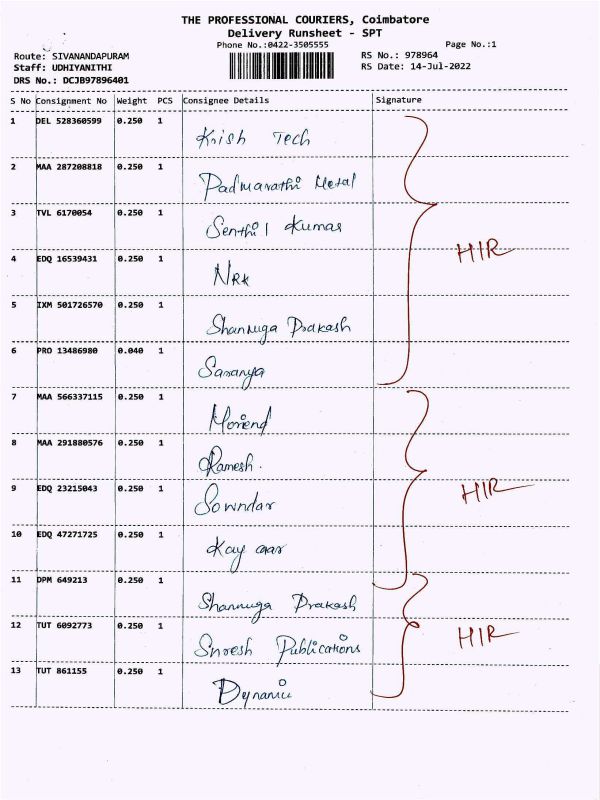 THE PROFESSIONAL COURIERS, Coimbatore
Delivery Runsheet - SPT
Phone No.:0422-3505555
Page No.:1
Route: SIVANANDAPURAM
RS No.: 978964
Staff: UDHIYANITHI
RS Date: 14-Jul-2022
DRS No.: DCJB97896401
S No Consignment No Weight PCS Consignee Details Signature
1 DEL 528360599 0.250 1 Krish Tech
2 MAA 287208818 0.250 1 Padmavathi Metal
3 TVL 6170054 0.250 1 Senthil Kumar
HIR
4 EDQ 16539431 0.250 1 NRK
5 IXM 501726570 0.250 1 Shanmuga Prakash
6 PRO 13486980 0.040 1 Saranya
7 MAA 566337115 0.250 1
8 MAA 291880576 0.250 1 Ramesh.
9 EDQ 23215043 0.250 1 Sowndar
HIR
10 EDQ 47271725 0.250 1 Kay aar
11 DPM 649213 0.250 1 Shanmuga Prakash
12 TUT 6092773 0.250 1 Suresh Publications
HIR
13 TUT 861155 0.250 1 Dynamic